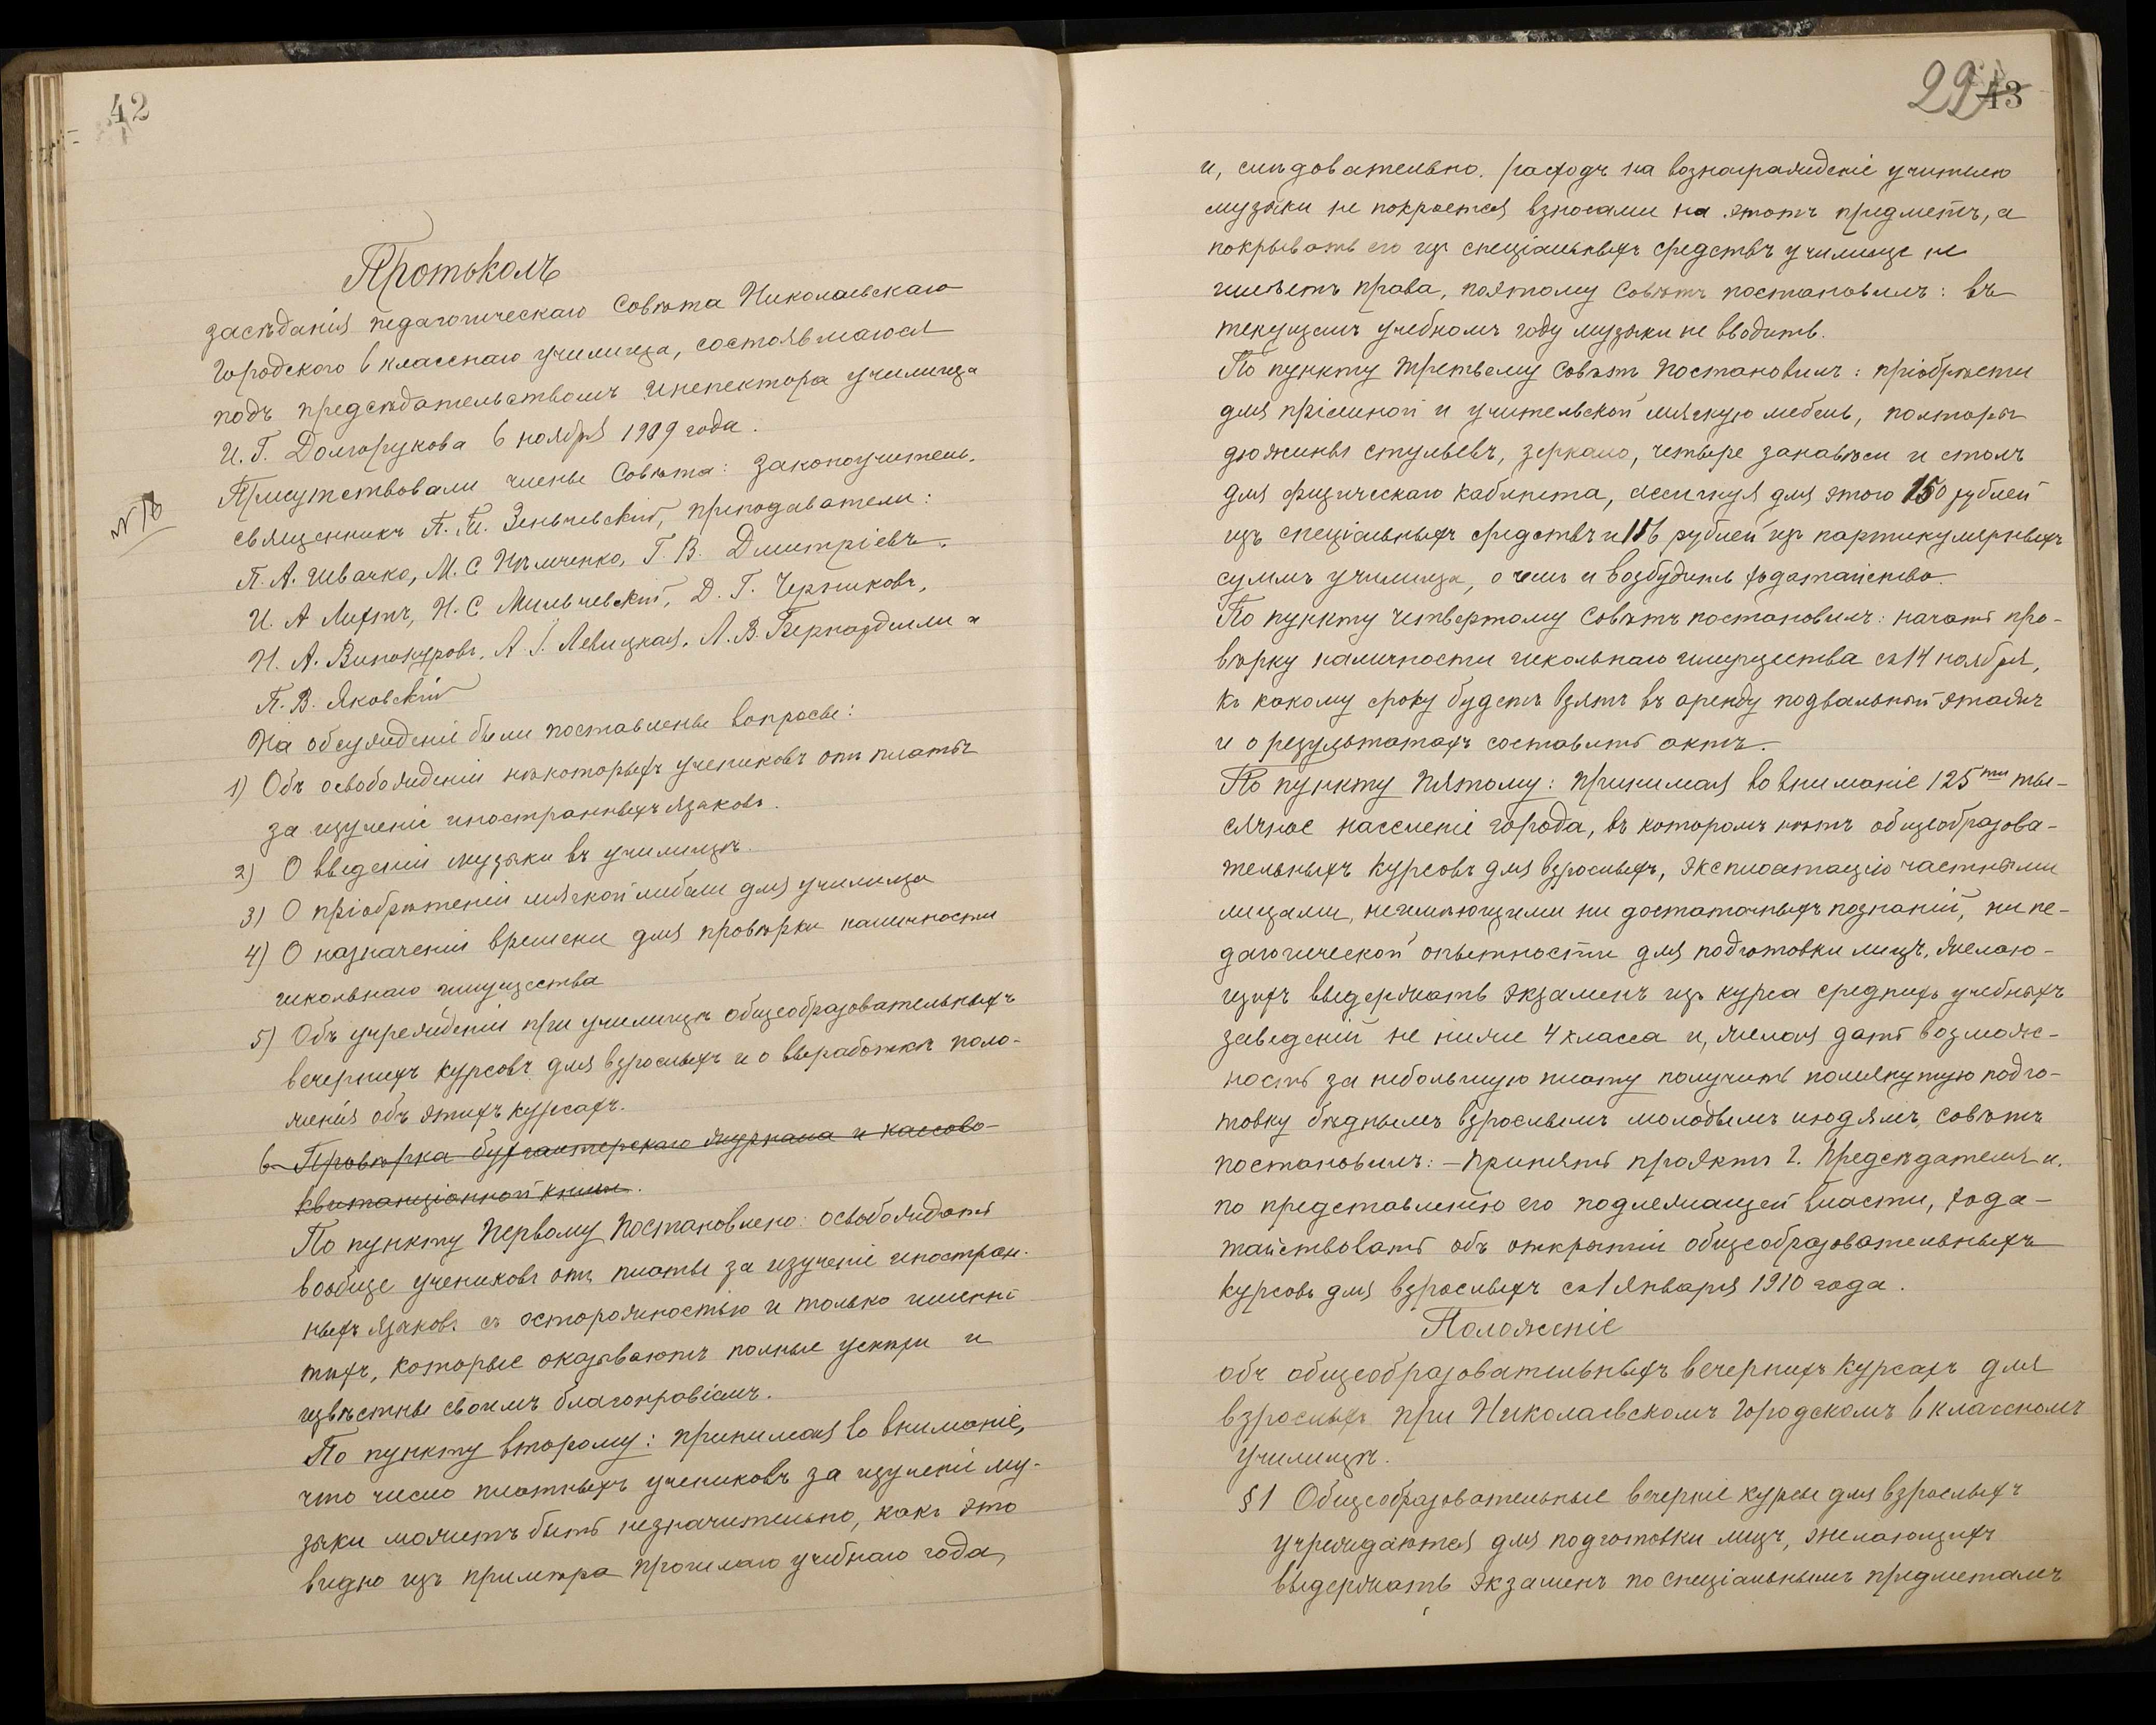 42
Протоколъ
засѣданія педагогическаго Совѣта Николаевскаго
Городского 6 класснаго училища, состоявшагося
подъ предсѣдательствомъ инспектора училища
И. Г. Долгорукова 6 ноября 1909 года.
Присутствовали члены Совѣта: законоучитель,
№ 18
священникъ П. М. Зеньчевскій, преподаватели:
П. А. Ивачко, М. С. Нѣмченко, Г. В. Дмитріевъ,
И. А. Лифтъ, Н. С. Мильчевскій, Д. Г. Черниковъ,
Н. А. Винокуровъ, А. І. Левицкая, Л. В. Бернардели и
П. В. Яковскій
На обсужденіе были поставлены вопросы:
1) Объ освобожденіи нѣкоторыхъ учениковъ отъ платы
за изученіе иностранныхъ языковъ.
2) О введеніи музыки въ училищѣ.
3) О пріобрѣтеніи мягкой мебели для училища
4) О назначеніи времени для провѣрки наличности
школьнаго имущества
5) Объ учрежденіи при училищѣ общеобразовательныхъ
вечернихъ курсовъ для взрослыхъ и о выработкѣ поло-
женія объ этихъ курсахъ.
6 Провѣрка бухгалтерскаго журнала и кассово-
квитанціонной книги.
По пункту первому постановлено: освобождать
вообще учениковъ отъ платы за изученіе иностран-
ныхъ языковъ съ осторожностью и только именно
тѣхъ, которые оказываютъ полные успѣхи и
извѣстны своимъ благонравіемъ.
По пункту второму: принимая во вниманіе,
что число платныхъ учениковъ за изученіе му-
зыки можетъ быть незначительно, какъ это
видно изъ примѣра прошлаго учебнаго года,
29 43
и, слѣдовательно, расходъ на вознагражденіе учителю
музыки не покроется взносами на этотъ предметъ, а
покрывать его изъ спеціальныхъ средствъ училище не
имѣетъ права, поэтому Совѣтъ постановилъ: въ
текущемъ учебномъ году музыки не вводить.
По пункту третьему Совѣтъ постановилъ: пріобрѣсти
для пріемной и учительской мягкую мебель, полторы
дюжины стульевъ, зеркало, четыре занавѣси и столъ
для физическаго кабинета, ассигнуя для этого 150 рублей
изъ спеціальныхъ средствъ и 116 рублей изъ партикулярныхъ
суммъ училища, о чемъ и возбудить ходатайство.
По пункту четвертому Совѣтъ постановилъ: начать про-
вѣрку наличности школьнаго имущества съ 14 ноября,
къ какому сроку будетъ взятъ въ аренду подвальный этажъ
и о результатахъ составить актъ.
По пункту пятому: принимая во вниманіе 125ти ты-
сячное населеніе города, въ которомъ нѣтъ общеобразова-
тельныхъ курсовъ для взрослыхъ, эксплоатацію частными
лицами, неимѣющими ни достаточныхъ познаній, ни пе-
дагогической опытности для подготовки лицъ, желаю-
щихъ выдержать экзаменъ изъ курса среднихъ учебныхъ
заведеній не ниже 4 класса и, желая дать возмож-
ность за небольшую плату получить помянутую подго-
товку бѣднымъ взрослымъ молодымъ людямъ, совѣтъ
постановилъ: - принять проэктъ г. Предсѣдателя и,
по представленію его подлежащей власти, хода-
тайствовать объ открытіи общеобразовательныхъ
курсовъ для взрослыхъ съ 1 Января 1910 года.
Положеніе
объ общеобразовательныхъ вечернихъ курсахъ для
взрослыхъ при Николаевскомъ Городскомъ 6 классномъ
училищѣ.
§ 1 Общеобразовательные вечерніе курсы для взрослыхъ
учреждаются для подготовки лицъ, желающихъ
выдержать экзаменъ по спеціальнымъ предметамъ